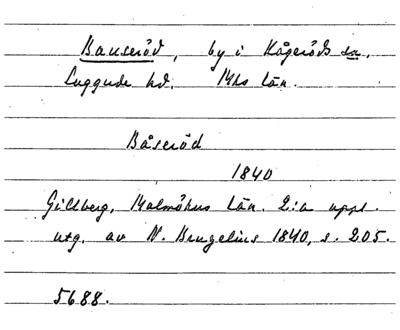 Bauseröd, by i Kågeröds sn,
Luggude hd. Mhs län.
Båseröd
1840
Gillberg, Malmöhus län. 2:a uppl.
utg. av N. Bruzelius 1840, s. 205.
5688.